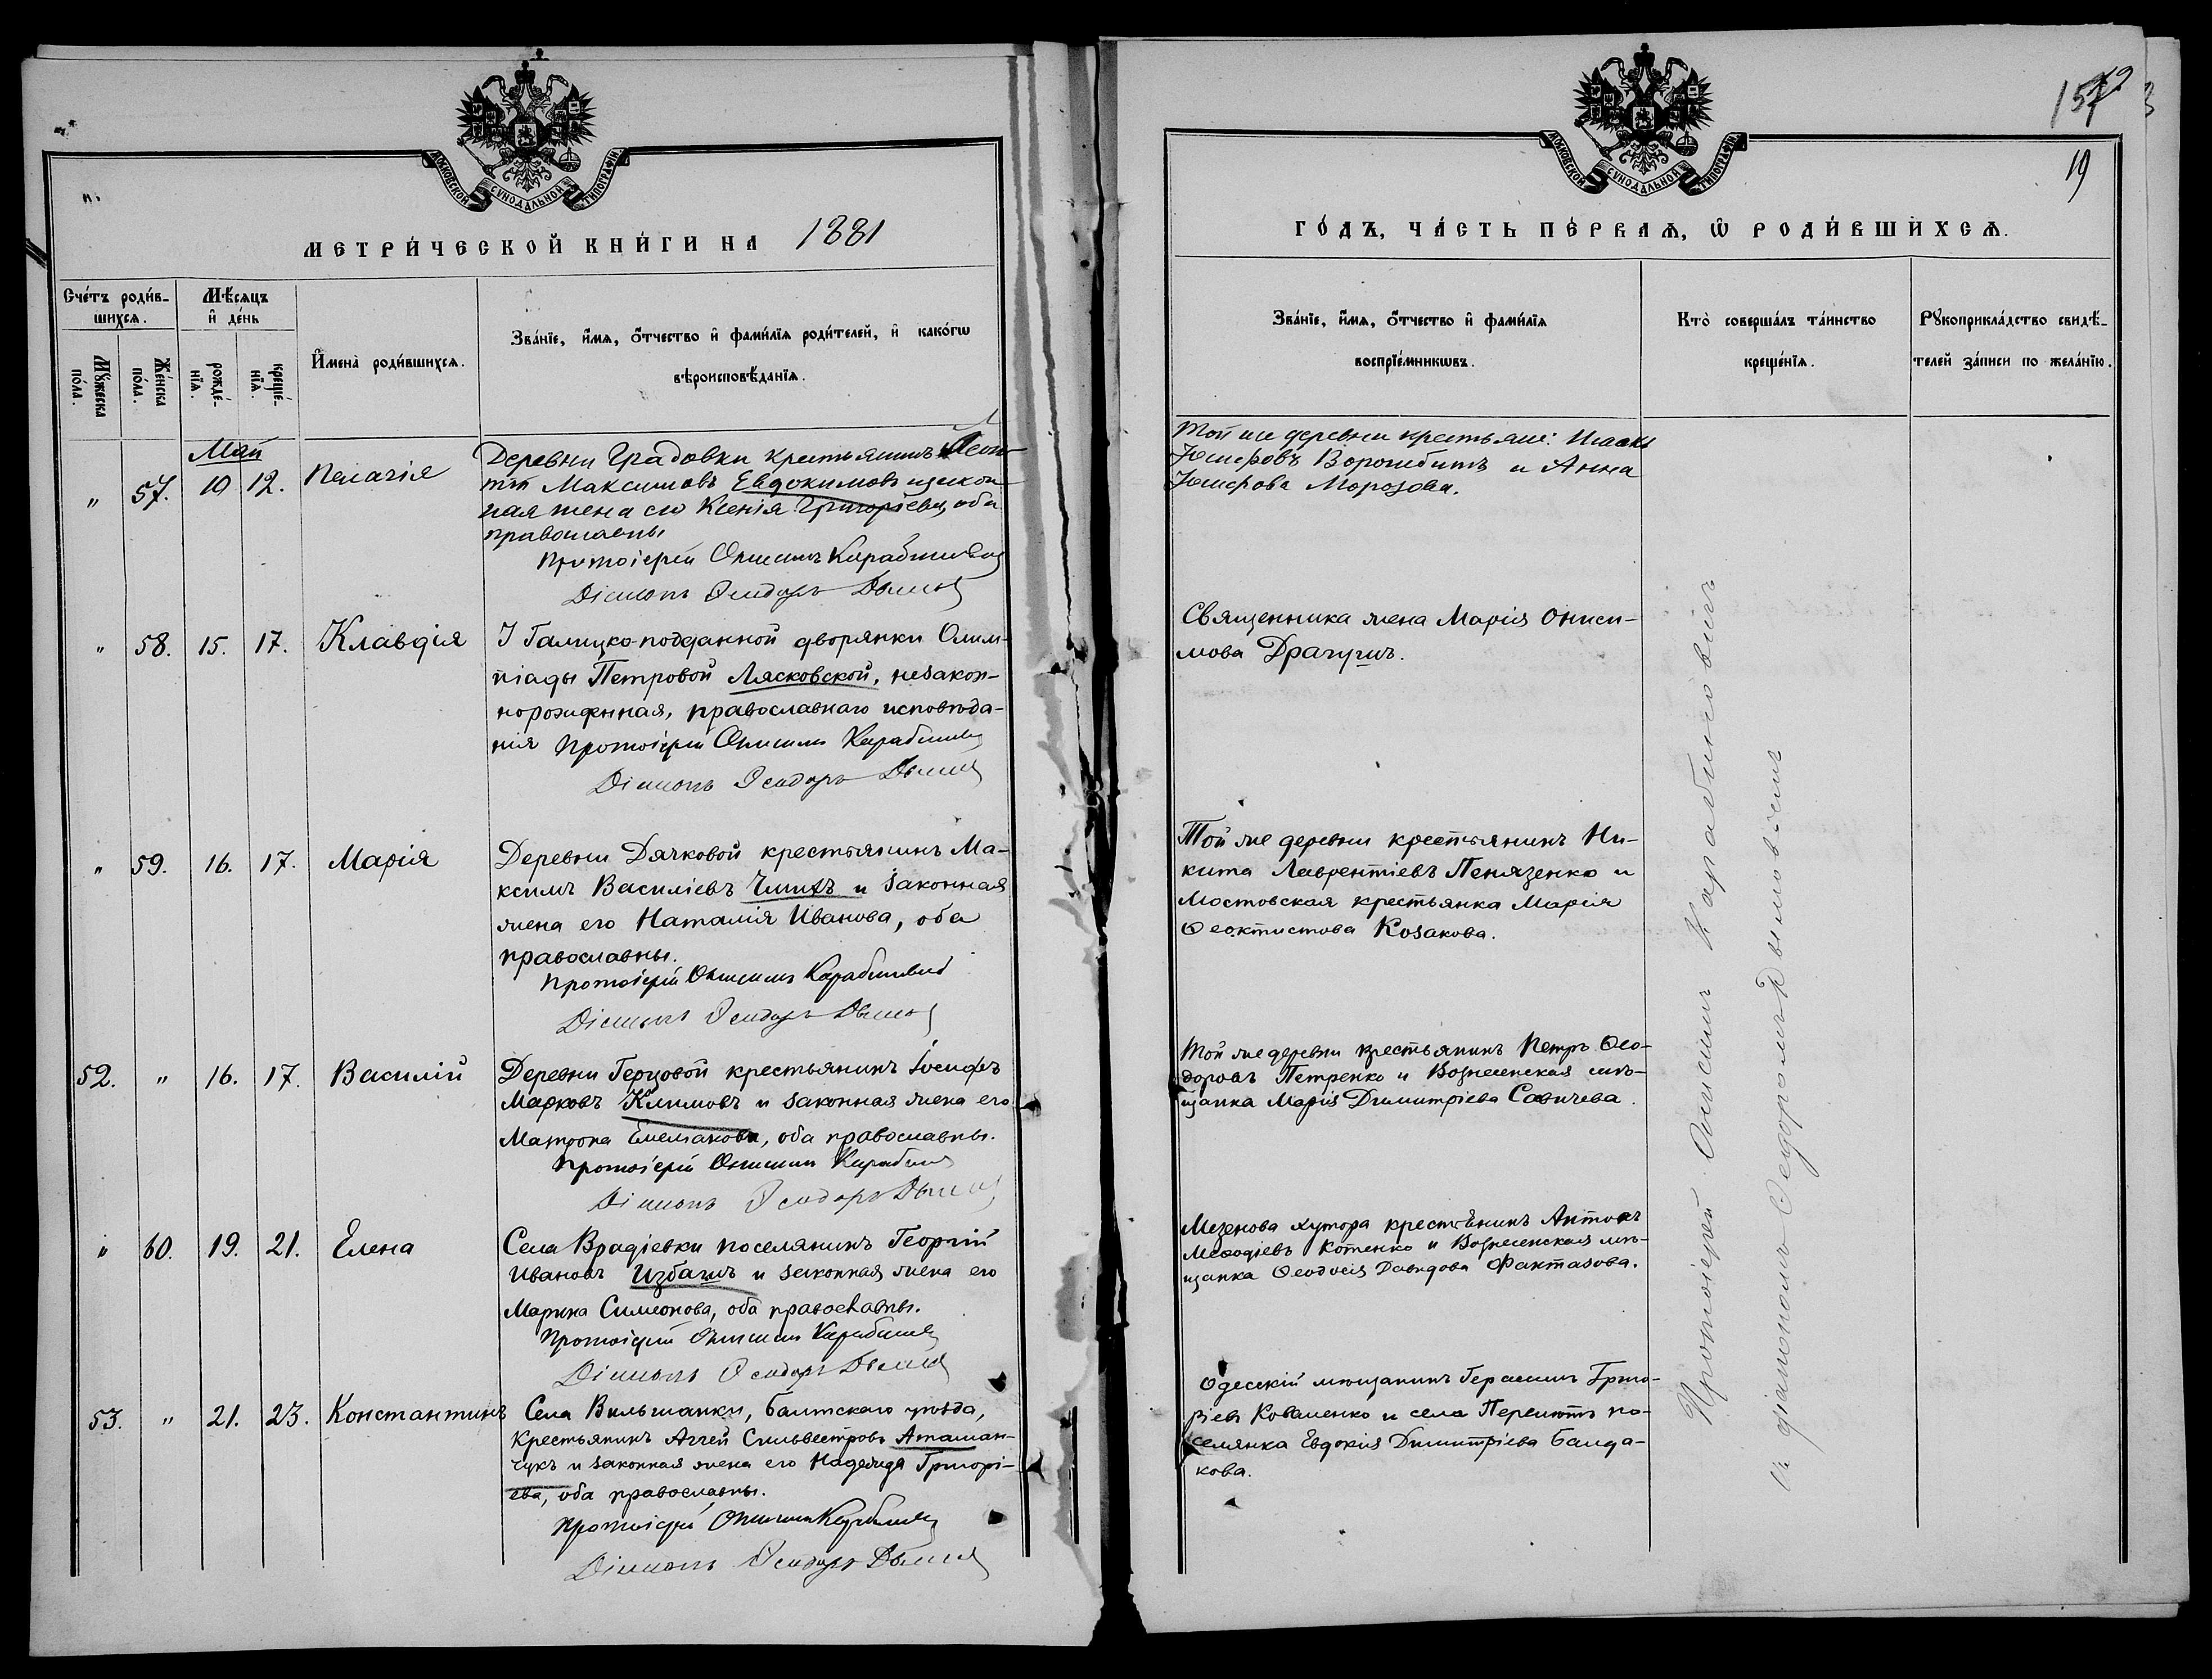 МОСКОВСКОЙ СѴНОДАЛЬНОЙ ТИПОГРАФІИ
МЕТРИ́ЧЕСКОЙ КНИ́ГИ НА 1881
Сче́тъ роди́в-
шихсѧ.
Мѣ́сѧцъ
и҆ де́нь
И҆мена̀ роди́вшихсѧ.
Зва́нїе, и҆́мѧ, ѻ҆́тчество и҆ фами́лїѧ роди́телей, и҆ како́гѡ
вѣроисповѣ́данїѧ.
Мꙋ́жеска
по́ла.
Же́нска
по́ла.
рожде́-
нїѧ.
креще́-
нїѧ.
Май
" 57. 10 12. Пелагія
Деревни Градовки крестьянинъ Леон-
тій Максимовъ Евдокимовъ и закон-
ная жена его Ксенія Григорьева, оба
православны
Протоіерей Онисимъ Карабиневичъ
Діаконъ Ѳеодоръ
" 58. 15. 17. Клавдія
Галицко-подданной дворянки Олим-
піады Петровой Лясковской, незакон-
норожденная, православнаго исповѣда-
нія Протоіерей Онисимъ Карабиневичъ
Діаконъ Ѳеодоръ
" 59. 16. 17. Марія
Деревни Дячковой крестьянинъ Ма-
ксимъ Василіевъ и законная
жена его Наталія Иванова, оба
православны.
Протоіерей Онисимъ Карабиневичъ
Діаконъ Ѳеодоръ
52. " 16. 17. Василій
Деревни Герцовой крестьянинъ Іосифъ
Марковъ Климовъ и законная жена его
Матрона Емельянова, оба православны.
Протоіерей Онисимъ Карабиневичъ
Діаконъ Ѳеодоръ
" 60. 19. 21. Елена
Села Врадіевки поселянинъ Георгій
Ивановъ Избашъ и законная жена его
Марина Симеонова, оба православны.
Протоіерей Онисимъ Карабиневичъ
Діаконъ Ѳеодоръ
53. " 21. 23. Константинъ
Села Вильшанки, Балтскаго уѣзда,
крестьянинъ Аггей Сильвестровъ Атаман-
чукъ и законная жена его Надежда Григорі-
ева, оба православны.
Протоіерей Онисимъ Карабиневичъ
Діаконъ Ѳеодоръ
19
МОСКОВСКОЙ СѴНОДАЛЬНОЙ ТИПОГРАФІИ
ГО́ДЪ, ЧА́СТЬ ПЕ́РВАѦ, Ѡ҆ РОДИ́ВШИХСѦ.
Зва́нїе, и҆́мѧ, ѻ҆́тчество и҆ фами́лїѧ
воспрїе́мникѡвъ.
Кто̀ соверша́лъ та́инство
креще́нїѧ.
Рꙋкоприкла́дство свидѣ́-
телей за́писи по жела́нїю.
Той же деревни крестьяне: Исаакъ
Іосифовъ Ворожбитъ и Анна
Іосифова Морозова.
Священника жена Марія Ониси-
мова Драгушъ.
Той же деревни крестьянинъ Ни-
кита Лаврентіевъ Пенязенко и
Мостовская крестьянка Марія
Ѳеоктистова Козакова.
Той же деревни крестьянинъ Петръ Ѳео-
доровъ Петренко и Вознесенская мѣ-
щанка Марія Димитріева Савичева.
Мезенова хутора крестьянинъ Антонъ
Меѳодіевъ Котенко и Вознесенская мѣ-
щанка Ѳеодосія Давидова Фактазова.
Одесскій мѣщанинъ Герасимъ Григо-
ріевъ Коваленко и села Перелетъ по-
селянка Евдокія Димитріева Балда-
кова.
Протоіерей Онисимъ Карабиневичъ
съ діакономъ Ѳеодоромъ Дымовичемъ